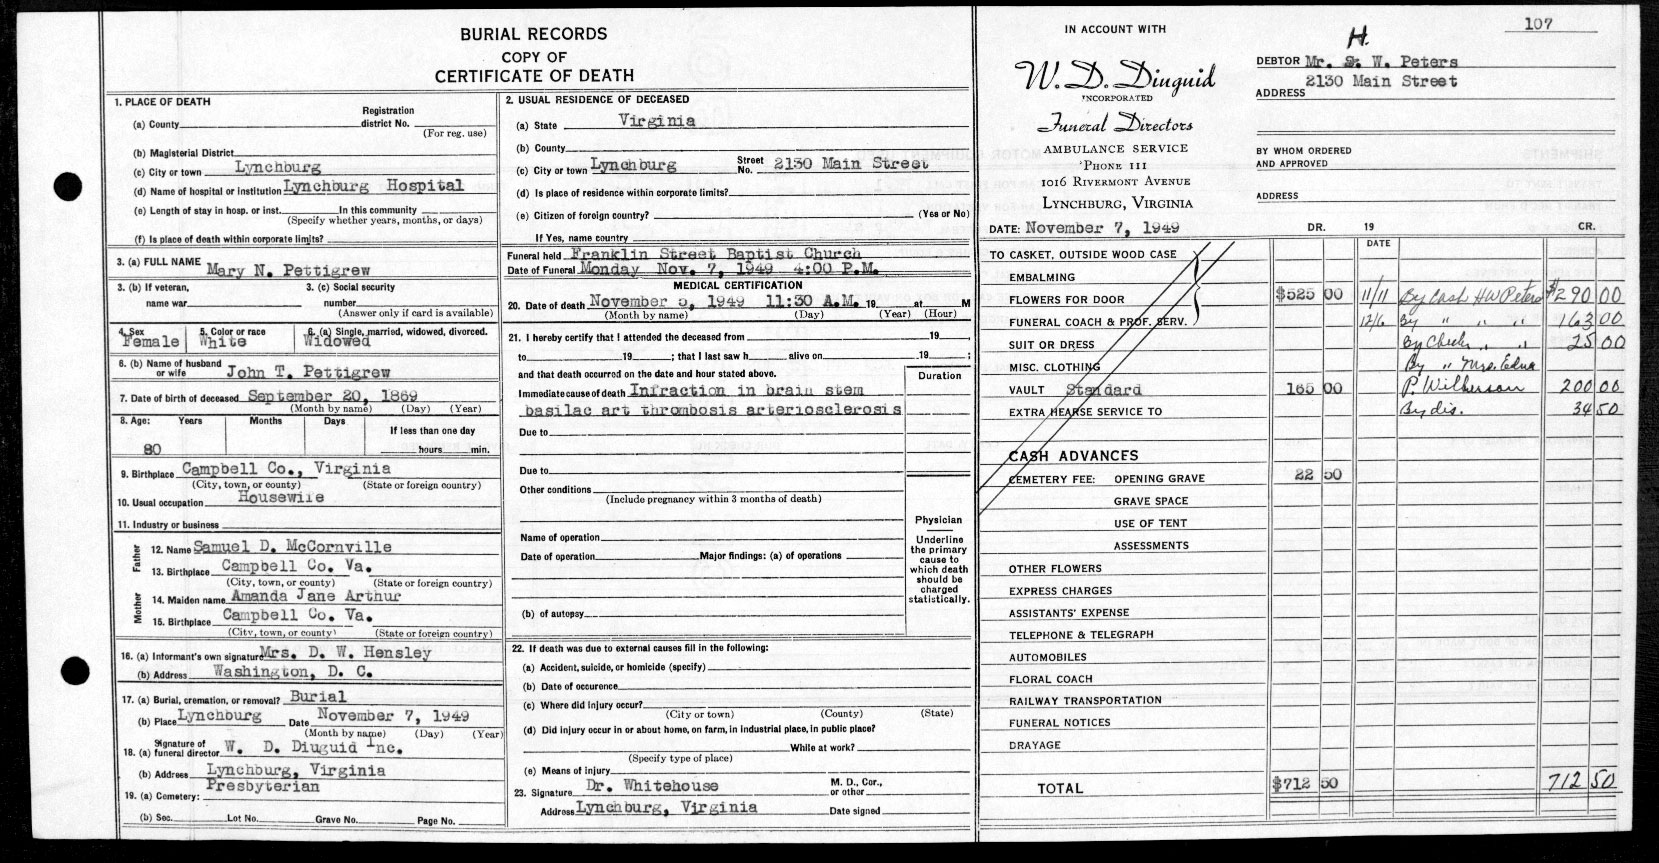 BURIAL RECORDS
COPY OF
CERTIFICATE OF DEATH
1. PLACE OF DEATH
(a) County Registration district No.
(For reg. use)
(b) Magisterial District
(c) City or town Lynchburg
(d) Name of hospital or institution Lynchburg Hospital
(e) Length of stay in hosp. or inst. In this community
(Specify whether years, months, or days)
(f) Is place of death within corporate limits?
3. (a) FULL NAME Mary N. Pettigrew
3. (b) If veteran, 3. (c) Social security
name war number
(Answer only if card is available)
4. Sex 5. Color or race 6. (a) Single, married, widowed, divorced.
Female White Widowed
6. (b) Name of husband or wife John T. Pettigrew
7. Date of birth of deceased September 20, 1869
(Month by name) (Day) (Year)
8. Age: Years Months Days If less than one day
80 hours min.
9. Birthplace Campbell Co., Virginia
(City, town, or county) (State or foreign country)
10. Usual occupation Housewife
11. Industry or business
Father
12. Name Samuel D. McCornville
13. Birthplace Campbell Co. Va.
(City, town, or county) (State or foreign country)
Mother
14. Maiden name Amanda Jane Arthur
15. Birthplace Campbell Co. Va.
(City, town, or county) (State or foreign country)
16. (a) Informant's own signature Mrs. D. W. Hensley
(b) Address Washington, D. C.
17. (a) Burial, cremation, or removal? Burial
(b) Place Lynchburg Date November 7, 1949
(Month by name) (Day) (Year)
18. (a) Signature of funeral director W. D. Diuguid Inc.
(b) Address Lynchburg, Virginia
19. (a) Cemetery: Presbyterian
(b) Sec. Lot No. Grave No. Page No.
2. USUAL RESIDENCE OF DECEASED
(a) State Virginia
(b) County
(c) City or town Lynchburg Street No. 2130 Main Street
(d) Is place of residence within corporate limits?
(e) Citizen of foreign country? (Yes or No)
If Yes, name country
Funeral held Franklin Street Baptist Church
Date of Funeral Monday Nov. 7, 1949 4:00 P.M.
MEDICAL CERTIFICATION
20. Date of death November 5, 1949 11:30 A.M. 19 at M
(Month by name) (Day) (Year) (Hour)
21. I hereby certify that I attended the deceased from 19
to 19 ; that I last saw h alive on 19 ;
and that death occurred on the date and hour stated above.
Duration
Immediate cause of death Infraction in brain stem
basilac art thrombosis arteriosclerosis
Due to
Due to
Other conditions
(Include pregnancy within 3 months of death)
Physician
Underline the primary cause to which death should be charged statistically.
Name of operation
Date of operation Major findings: (a) of operations
(b) of autopsy
22. If death was due to external causes fill in the following:
(a) Accident, suicide, or homicide (specify)
(b) Date of occurence
(c) Where did injury occur?
(City or town) (County) (State)
(d) Did injury occur in or about home, on farm, in industrial place, in public place?
While at work?
(Specify type of place)
(e) Means of injury
23. Signature Dr. Whitehouse M. D., Cor., or other
Address Lynchburg, Virginia Date signed
107
IN ACCOUNT WITH
W. D. Diuguid
INCORPORATED
Funeral Directors
AMBULANCE SERVICE
'PHONE 111
1016 RIVERMONT AVENUE
LYNCHBURG, VIRGINIA
H.
DEBTOR Mr. S. W. Peters
2130 Main Street
ADDRESS
BY WHOM ORDERED
AND APPROVED
ADDRESS
DATE: November 7, 1949 DR. 19 CR.
DATE
TO CASKET, OUTSIDE WOOD CASE
EMBALMING
FLOWERS FOR DOOR $525 00 11/11 By Cash H W Peters $290 00
FUNERAL COACH & PROF. SERV. 12/6 By " " " 163 00
SUIT OR DRESS By Check " " 25 00
MISC. CLOTHING By " Mrs. Edna
VAULT Standard 165 00 P. Wilkerson 200 00
EXTRA HEARSE SERVICE TO By dis. 34 50
CASH ADVANCES
CEMETERY FEE: OPENING GRAVE 22 50
GRAVE SPACE
USE OF TENT
ASSESSMENTS
OTHER FLOWERS
EXPRESS CHARGES
ASSISTANTS' EXPENSE
TELEPHONE & TELEGRAPH
AUTOMOBILES
FLORAL COACH
RAILWAY TRANSPORTATION
FUNERAL NOTICES
DRAYAGE
TOTAL $712 50 712 50